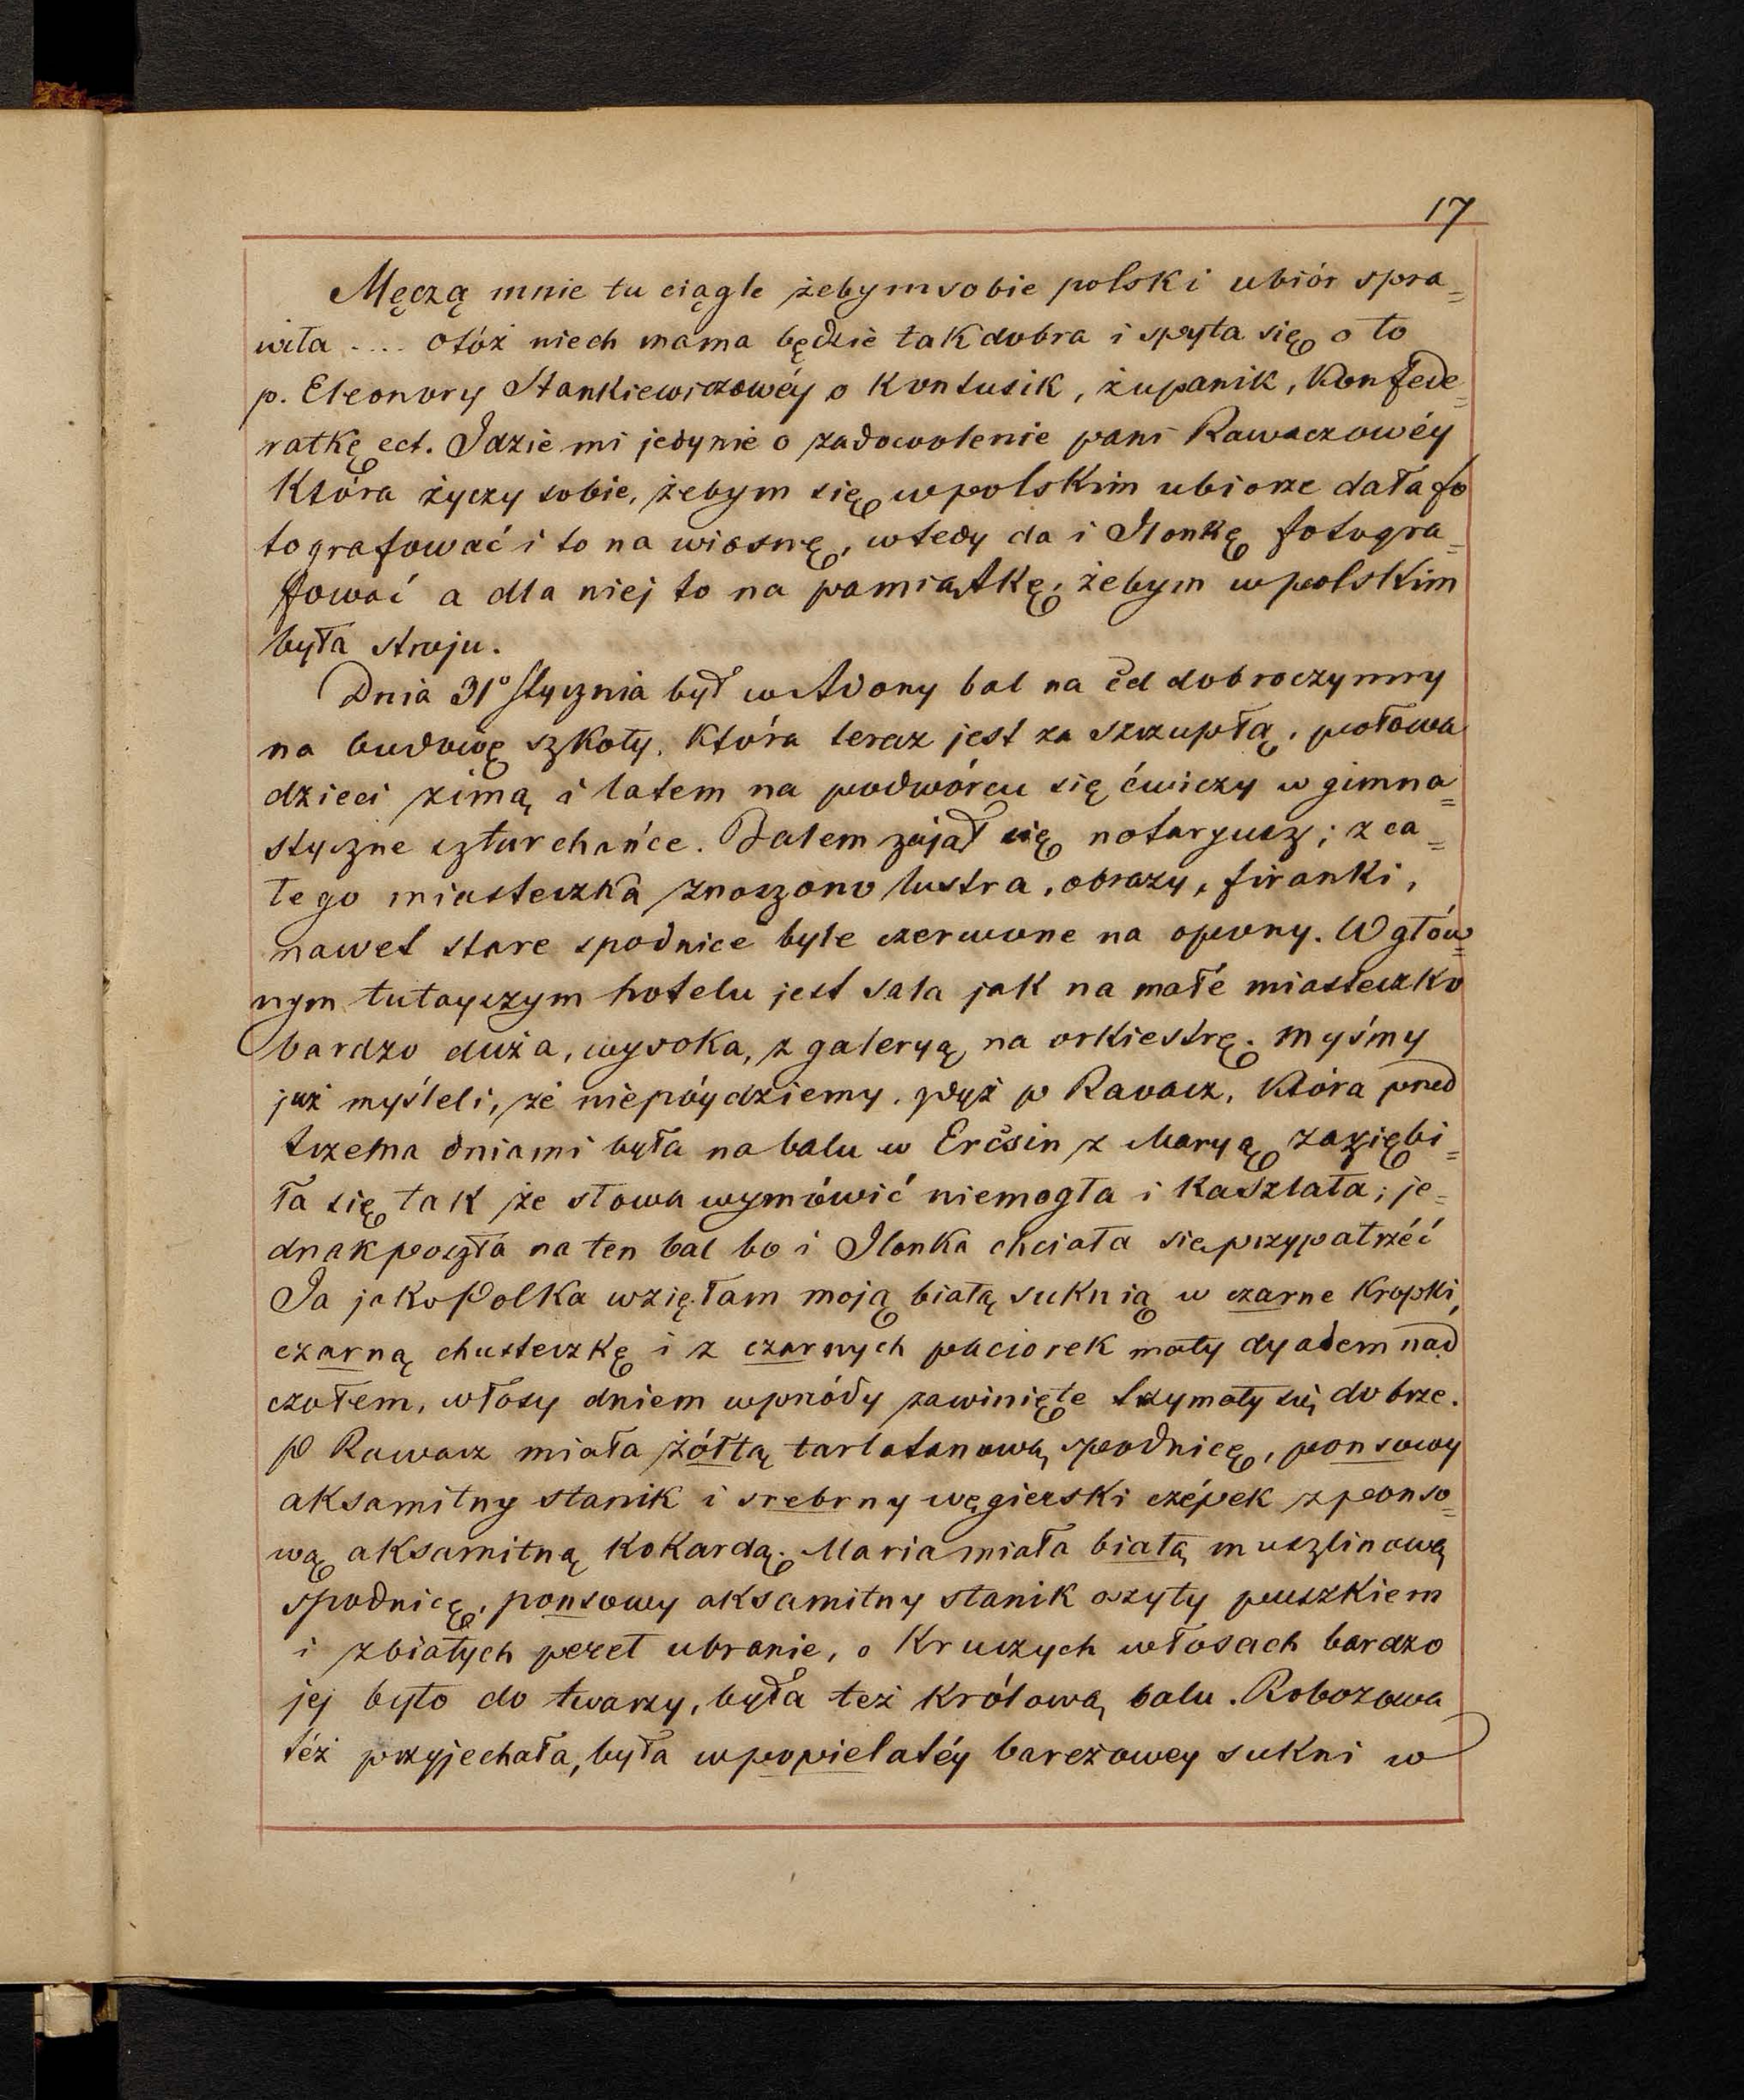 17
Męczą mnie tu ciągle żebym sobie polski ubiór spra=
wiła .... otóż niech mama będzie tak dobra i spyta się o to
p. Eleonory Stankiewiczowéy o Kontusik, żupanik, Konfede=
ratkę ect. Idzie mi jedynie o zadowolenie pani Rawaczowéy
Która życzy sobie, żebym się w polskim ubiorze dała fo
tografować i to na wiosnę, wtedy da i Ilonkę fotogra=
fować a dla niej to na pamiątkę, żebym w polskim
była stroju.
Dnia 31° Stycznia był w Adony bal na cel dobroczynny
na budowę szkoły, Która teraz jest za szczupłą, połowa
dzieci zimą i latem na podwórcu się ćwiczy w gimna=
styczne szturchańce. Balem zajął się notaryusz; z ca=
łego miasteczka znoszono lustra, obrazy, firanki,
nawet stare spodnice byle czerwone na opony. W głów=
nym tutayszym hotelu jest sala jak na małe miasteczko
bardzo duża, wysoka, z galeryą na orkiestrę. Myśmy
już myśleli, że niepóydziemy, gdyż p Ravacz, Która przed
trzema dniami była na balu w Ercsin z Maryą zaziębi=
ła się tak że słowa wymówić niemogła i Kaszlała; je=
dnak poszła na ten bal bo i Ilonka chciała się przypatrzéć
Ja jako Polka wzięłam moją białą suknią w czarne Kropki,
czarną chusteczkę i z czarnych paciorek mały dyadem nad
czołem, włosy dniem wprzódy zawinięte trzymały się dobrze.
P Rawacz miała żółtą tarlatanową spodnicę, ponsowy
aksamitny stanik i srebrny węgierski czépek z ponso=
wą aksamitną Kokardą. Maria miała białą muszlinową
spodnicę, ponsowy aksamitny stanik oszyty puszkiem
i z białych pereł ubranie, o Kruczych włosach bardzo
jej było do twarzy, była też Królową balu. Robozowa
téż przyjechała, była w popielatéy bareżowey sukni w